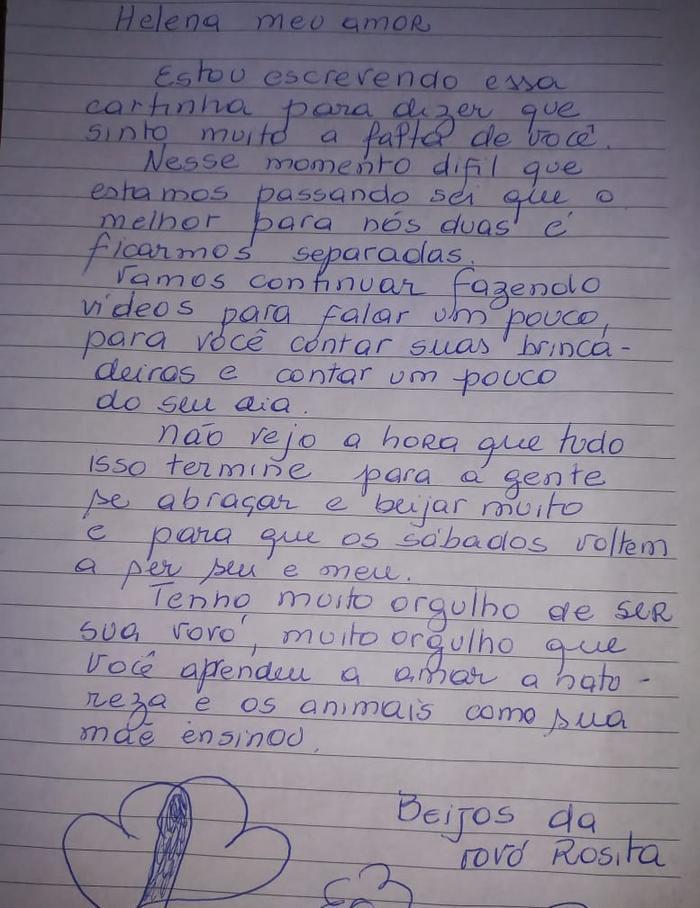 Helena meu amor
Estou escrevendo essa
cartinha para dizer que
sinto muito a falta de você.
Nesse momento difil que
estamos passando sei que o
melhor para nós duas é
ficarmos separadas.
Vamos continuar fazendo
vídeos para falar um pouco,
para você contar suas brinca-
deiras e contar um pouco
do seu dia.
Não vejo a hora que tudo
isso termine para a gente
se abraçar e beijar muito
e para que os sábados voltem
a ser seu e meu.
Tenho muito orgulho de ser
sua vovó, muito orgulho que
você aprendeu a amar a natu-
reza e os animais como sua
mãe ensinou.
Beijos da
vovó Rosita